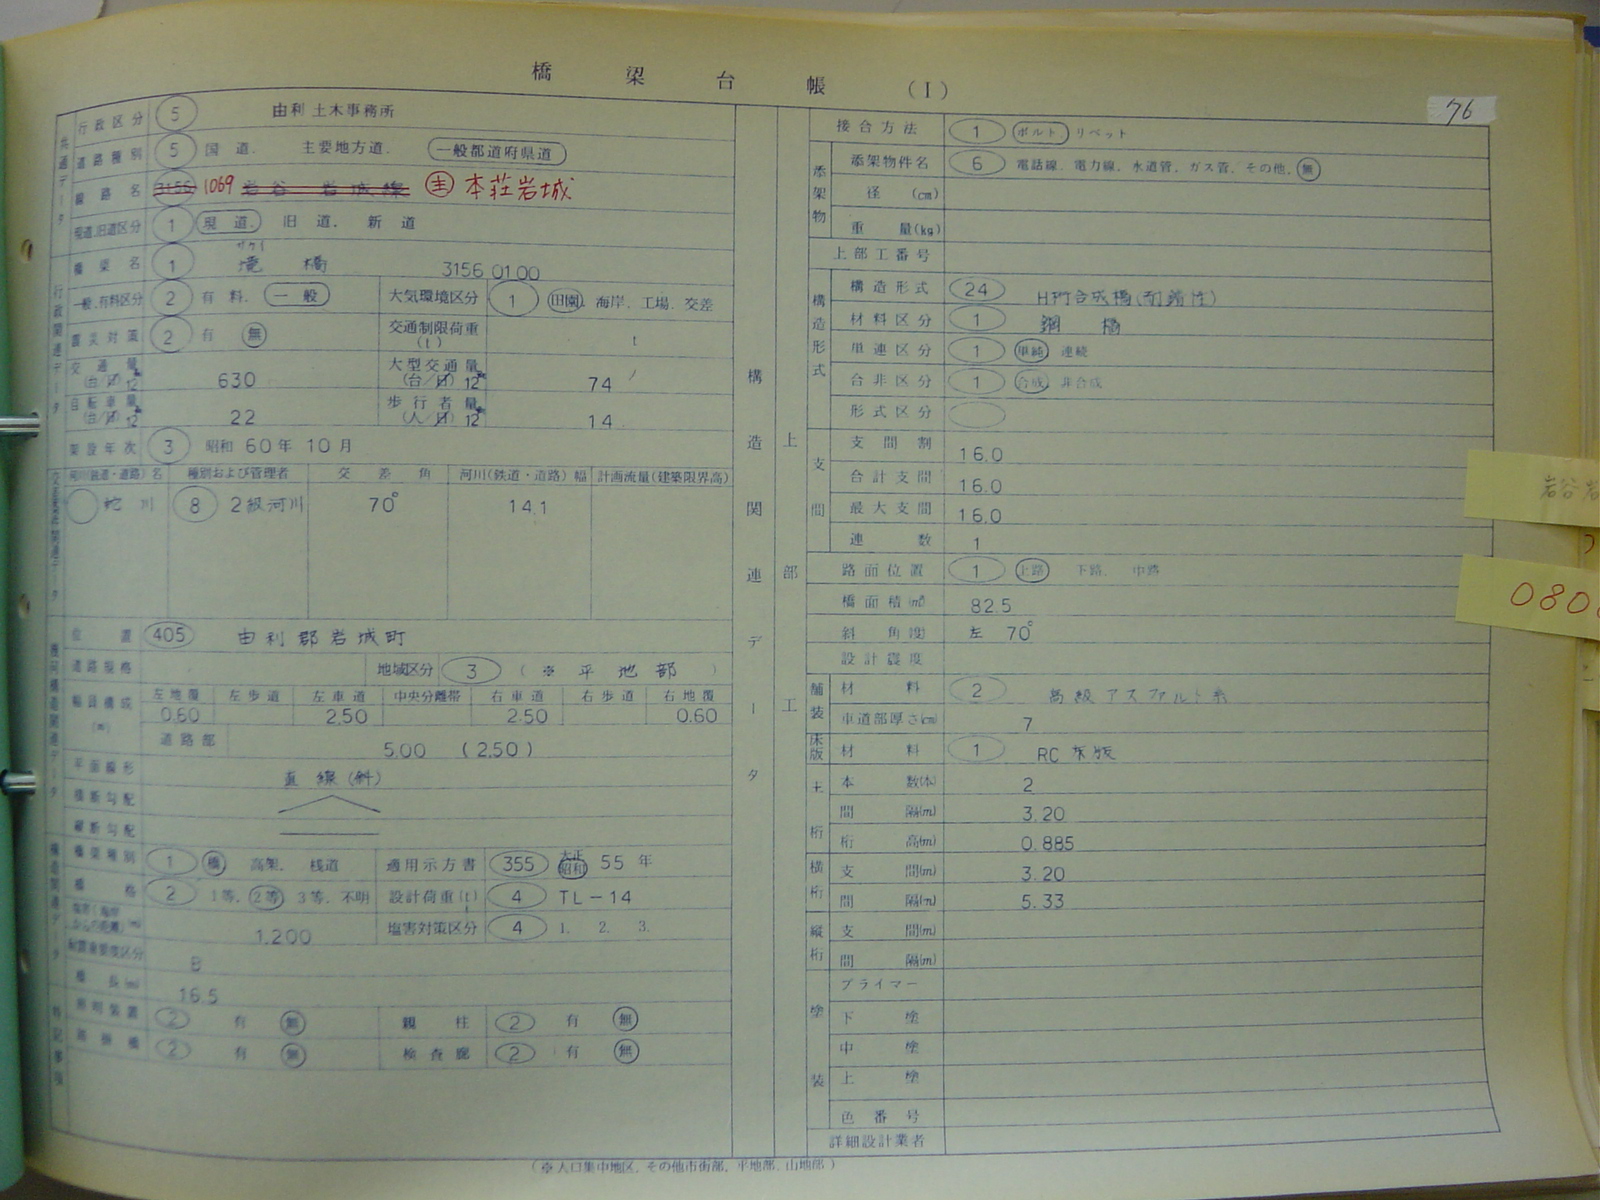 橋梁台帳 (I)
76
行政区分 5 由利土木事務所
道路種別 5 国道. 主要地方道. 一般都道府県道
路線名 3156 1069 岩谷 岩城線 主 本荘岩城
現道.旧道区分 1 現道. 旧道. 新道
サカイ
橋梁名 1 境橋 3156 01.00
一般.有料区分 2 有料. 一般 大気環境区分 1 田園. 海岸. 工場. 交差
震災対策 2 有 無 交通制限荷重(t) t
交通量(台/日)12 630 大型交通量(台/日)12 74
自転車量(台/日)12 22 歩行者量(人/日)12 14
架設年次 3 昭和 60年 10月
河川(鉄道・道路)名 種別および管理者 交差角 河川(鉄道・道路)幅 計画流量(建築限界高)
蛇川 8 2級河川 70° 14.1
位置 405 由利郡岩城町
道路規格 地域区分 3 (※ 平地部 )
幅員構成(m) 左地覆 左歩道 左車道 中央分離帯 右車道 右歩道 右地覆
0.60 2.50 2.50 0.60
道路部 5.00 (2.50)
平面線形 直線(斜)
横断勾配
縦断勾配
橋梁種別 1 橋 高架. 桟道 適用示方書 355 大正 昭和 55年
橋格 2 1等. 2等 3等. 不明 設計荷重(t) 4 TL-14
1.200 塩害対策区分 4 1. 2. 3.
B
橋長(m) 16.5
照明装置 2 有 無 親柱 2 有 無
2 有 無 検査廊 2 有 無
(※人口集中地区. その他市街部. 平地部. 山地部)
共通データ
行政関連データ
特記事項
構造関連データ
上部工
接合方法 1 ボルト リベット
添架物
添架物件名 6 電話線. 電力線. 水道管. ガス管. その他. 無
径 (cm)
重量(kg)
上部工番号
構造形式
構造形式 24 H桁合成橋(耐錆性)
材料区分 1 鋼橋
単連区分 1 単純 連続
合非区分 1 合成 非合成
形式区分
支間
支間割 16.0
合計支間 16.0
最大支間 16.0
連数 1
路面位置 1 上路 下路. 中路
橋面積(㎡) 82.5
斜角度 左 70°
設計震度
舗装
材料 2 高級アスファルト系
車道部厚さ(cm) 7
床版
材料 1 RC床版
主桁
本数(本) 2
間隔(m) 3.20
桁高(m) 0.885
横桁
支間(m) 3.20
間隔(m) 5.33
縦桁
支間(m)
間隔(m)
塗装
プライマー
下塗
中塗
上塗
色番号
詳細設計業者
岩谷岩
080